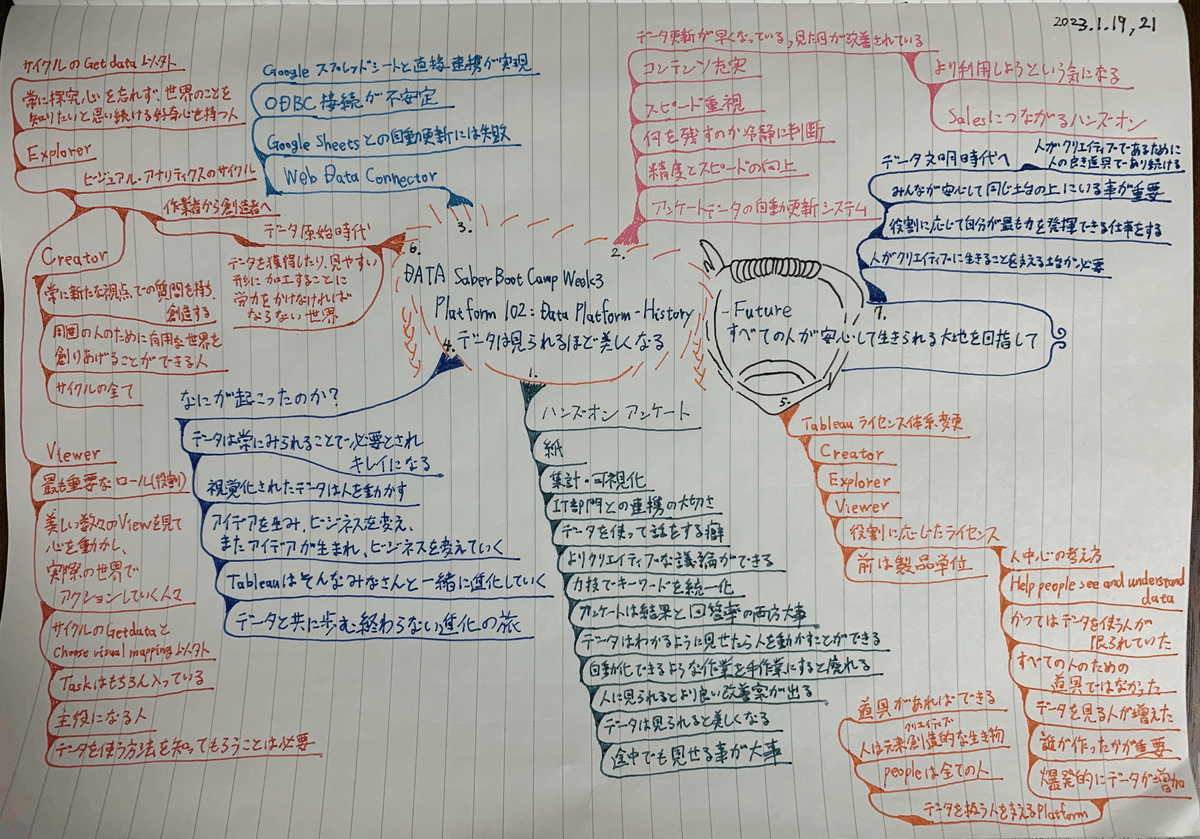 2023.1.19,21
DATA Saber Boot Camp Week3
Platform 102: Data Platform-History
データは見られるほど美しくなる
-Future
すべての人が安心して生きられる大地を目指して
1.
ハンズオン アンケート
紙
集計・可視化
IT部門との連携の大切さ
データを使って話をする癖
よりクリエイティブな議論ができる
力技でキーワードを統一化
アンケートは結果と回答率の両方大事
データはわかるように見せたら人を動かすことができる
自動化できるような作業を手作業にすると廃れる
人に見られるとより良い改善案が出る
データは見られると美しくなる
途中でも見せる事が大事
2.
アンケートデータの自動更新システム
精度とスピードの向上
何を残すのか冷静に判断
スピード重視
コンテンツ充実
データ更新が早くなっている,見た目が改善されている
より利用しようという気になる
Salesにつながるハンズオン
3.
Web Data Connector
Google Sheetsとの自動更新には失敗
ODBC接続が不安定
Googleスプレッドシートと直接連携が実現
4.
なにが起こったのか?
データは常にみられることで必要とされ
キレイになる
視覚化されたデータは人を動かす
アイデアを生み、ビジネスを変え、
またアイデアが生まれ、ビジネスを変えていく
Tableauはそんなみなさんと一緒に進化していく
データと共に歩む終わらない進化の旅
5.
Tableauライセンス体系変更
Creator
Explorer
Viewer
役割に応じたライセンス
前は製品単位
人中心の考え方
Help people see and understand
data
かつてはデータを使う人が
限られていた
すべての人のための
道具ではなかった
データを見る人が増えた
誰が作ったかが重要
爆発的にデータが増加
データを扱う人を支えるPlatform
peopleは全ての人
クリエイティブ
人は元来創造的な生き物
道具があればできる
6.
データ原始時代
データを獲得したり、見やすい
形に加工することに
労力をかけなければ
ならない世界
作業者から創造者へ
ビジュアル・アナリティクスのサイクル
Explorer
常に探究心を忘れず、世界のことを
知りたいと思い続ける好奇心を持つ人
サイクルのGet data以外
Creator
常に新たな視点での質問を持ち、
創造する
周囲の人のために有用な世界を
創りあげることができる人
サイクルの全て
Viewer
最も重要なロール(役割)
美しい数々のViewを見て
心を動かし、
実際の世界で
アクションしていく人々
サイクルのGetdataと
choose visual mapping以外
Taskはもちろん入っている
主役になる人
データを使う方法を知ってもらうことは必要
7.
人がクリエイティブに生きることを支える土台が必要
役割に応じて自分が最も力を発揮できる仕事をする
みんなが安心して同じ土台の上にいる事が重要
データ文明時代へ
人がクリエイティブであるために
人の良き道具であり続ける